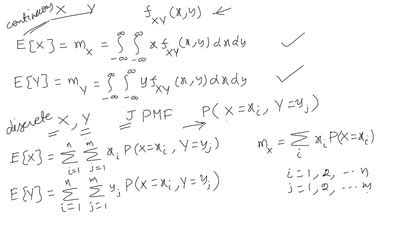 continuous X Y f_XY (x,y) ←
E[X] = m_x = ∫_{-∞}^{∞} ∫_{-∞}^{∞} x f_XY (x,y) dx dy ✓
E[Y] = m_Y = ∫_{-∞}^{∞} ∫_{-∞}^{∞} y f_XY (x,y) dx dy ✓
discrete X, Y J PMF → P( X=x_i , Y=y_j )
E[X] = ∑_{i=1}^{n} ∑_{j=1}^{m} x_i P(X=x_i , Y=y_j) m_x = ∑_i x_i P(X=x_i)
E[Y] = ∑_{i=1}^{n} ∑_{j=1}^{m} y_j P(X=x_i, Y=y_j) i=1, 2, ... n
j=1, 2, ... m